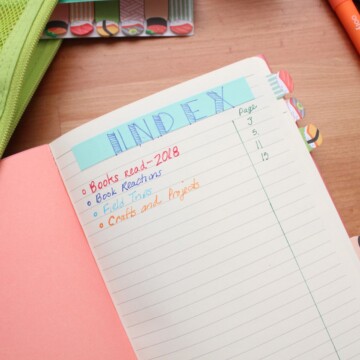 INDEX
Page
Books read-2018
Book Reactions 5
Field Trips 11
Crafts and Projects 13